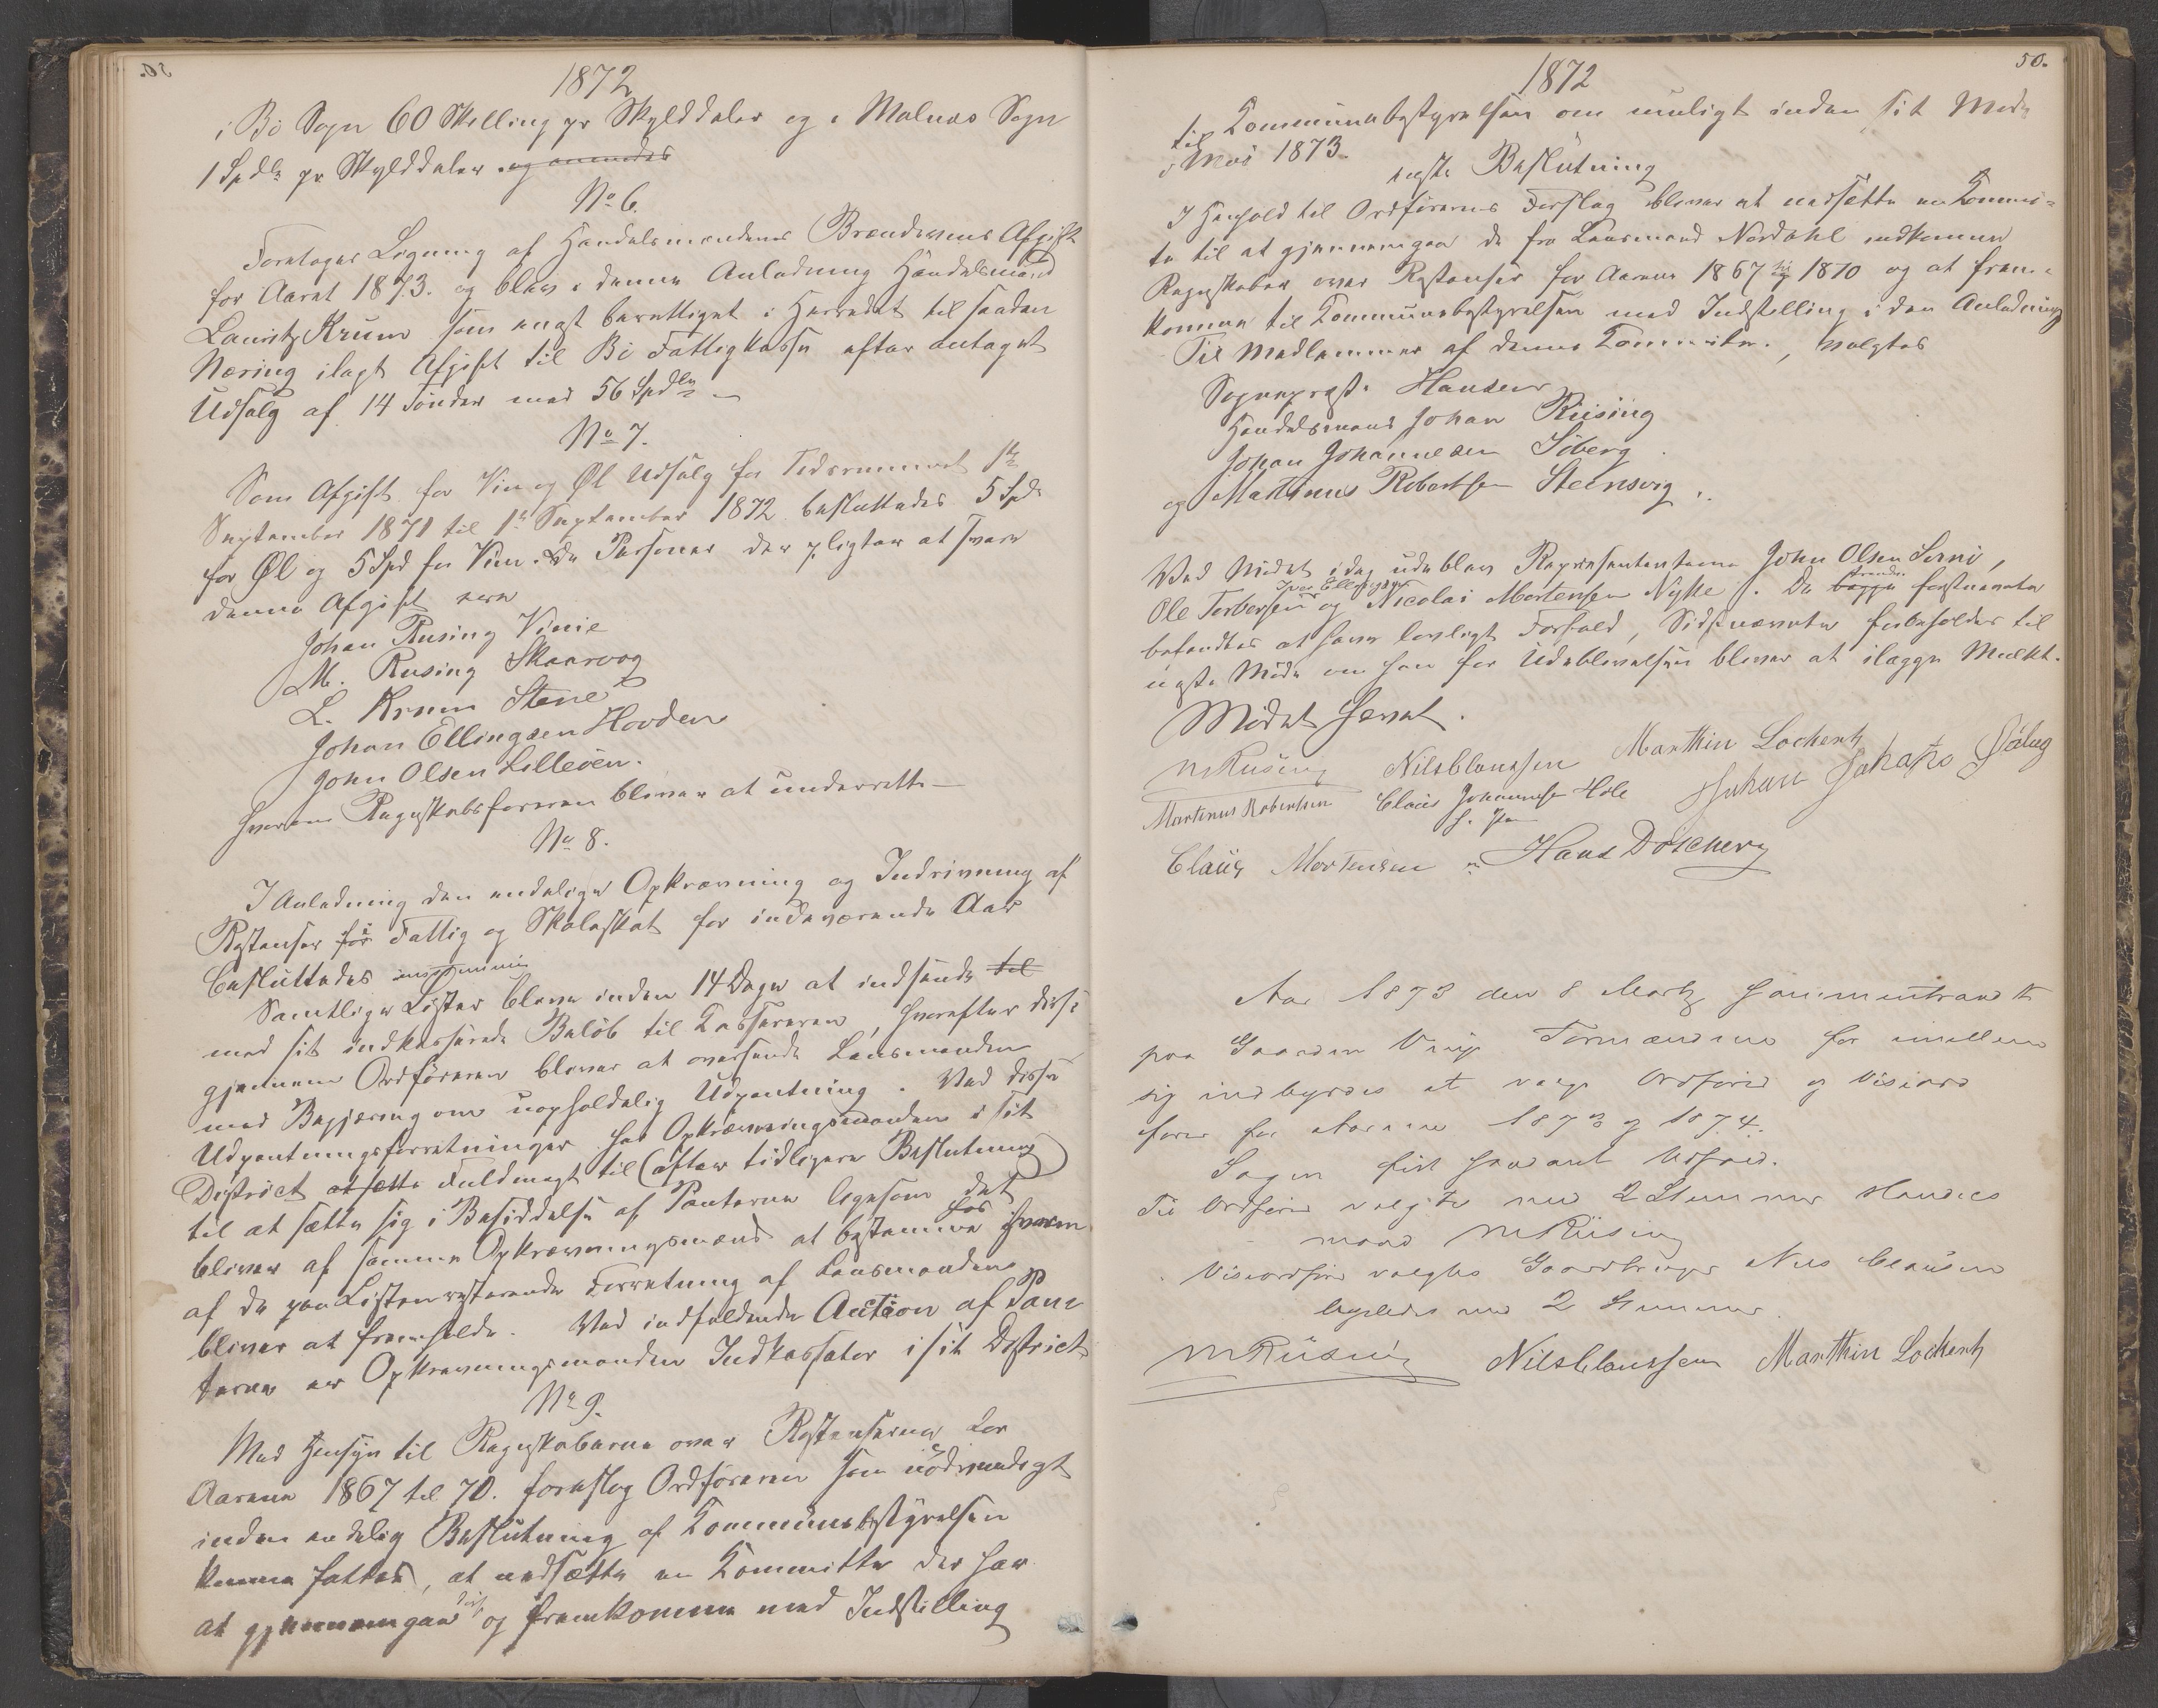 1872
i Bö Sogn 60 Skilling pr Skylddaler og i Malnæs Sogn
1 Spdlr pr Skylddaler. og anmodes
No 6.
Foretoges Ligning af Handelsmændenes Brændevins Afgift
for Aaret 1873. og blev i denne Anledning Handelsmand
Lauritz Krum som eneste berettiget i Herredet til saadan
Næring ilagt Afgift til Bö Fattigkasse efter antaget
Udsalg af 14 Tönder med 56 Spdlr
No 7.
Som Afgift for Vin og Øl Udsalg for Tidsrummet 1te
September 1871 til 1te September 1872 besluttedes 5 Spd
for Øl og 5 Spd for Vin. De Personer der pligter at svare
denne Afgift ere
Johan Rusing Vinie
M. Rusing Skaarvog
L. Krum Stene
Johan Ellingsen Hovden
John Olsen Lilleöen.
hvorom Regnskabsföreren bliver at underrette
No 8.
I Anledning den endelige Opkrævning og Inddrivning af
Restanser for i Fattig og Skoleskat for indeværende Aar
besluttedes enstemmig
Samtlige Lister bliver inden 14 Dage at indsende til
med sit indkasserede Belöb til Kassereren, hvorefter disse
gjennem Ordföreren bliver at oversende Lensmanden
med Begjæring om uopholdelig Udpantning. Ved disse
Udpantningsforretninger har Opkrævningsmanden i sit
District at sætte Fuldmagt til (efter tidligere Beslutning)
til at sætte sig i Besiddelse af Panterne ligesom det
bliver af samme Opkrævningsmænd at bestemme hos hvem
af de paa Listen resterende Forretning af Lensmanden
bliver at fremholde. Ved indfaldende Auction af Pan
terne er Opkrævningsmanden Indkassator i sit District
No 9.
Med Hensyn til Regnskaberne over Restanserne for
Aarene 1867 til 70. foreslog Ordföreren som nödvendigt
inden endelig Beslutning af Kommunebestyrelsen
kunne fattes, at nedsætte en Committe der har
at gjennemgaa disse og fremkomme med Indstilling
50.
1872
til Kommunebestyrelsen om muligt inden sit Möde
i Mai 1873.
Beslutning
I Henhold til Ordförerens Forslag bliver at nedsætte en Kommi=
te til at gjennemgaa de fra Lensmand Nordahl indkomne
Regnskaber over Restanser for Aarene 1867 til 1870 og at frem=
komme til Kommunebestyrelsen med Indstilling i den Anledning
Til Medlemmer af denne Committe, valgtes
Sogneprest Hansen
Handelsmand Johan Rüsing
Johan Johannesen Söberg
og Martinus Robertsen Steensvig.
Ved Mödet idag udeblev Repræsentanterne John Olsen
Iver Ellingsen
Ole Torbersen og Nicolai Mortensen Nykke. De trende begge förstnævnte
befandtes at have lovligt Forfald, Sidstnævnte forbeholdes til
næste Möde om han for Udeblivelsen bliver at ilægge Mulkt.
Mödet hævet.
M Rüsing Nils Claussen Marthin Lockert
Martinus Robertsen Claus Johannesen Hole Johan Johans Söberg
Claus Mortensen Hans Döscherg
Aar 1873 den 8 Marts sammentraadte
paa Gaarden Vinje Formændene for imellem
sig indbyrdes at vælge Ordförer og Viseord
förer for Aarene 1873 og 1874.
Sagen fik saadant Udfald.
Til Ordförer valgtes med 2 Stemmer Handels
mand M Rüsing
Viseordförer valgtes Gaardbruger Nils Clausen
ligeledes med 2 Stemmer.
M Rüsing Nils Claussen Marthin Lockert